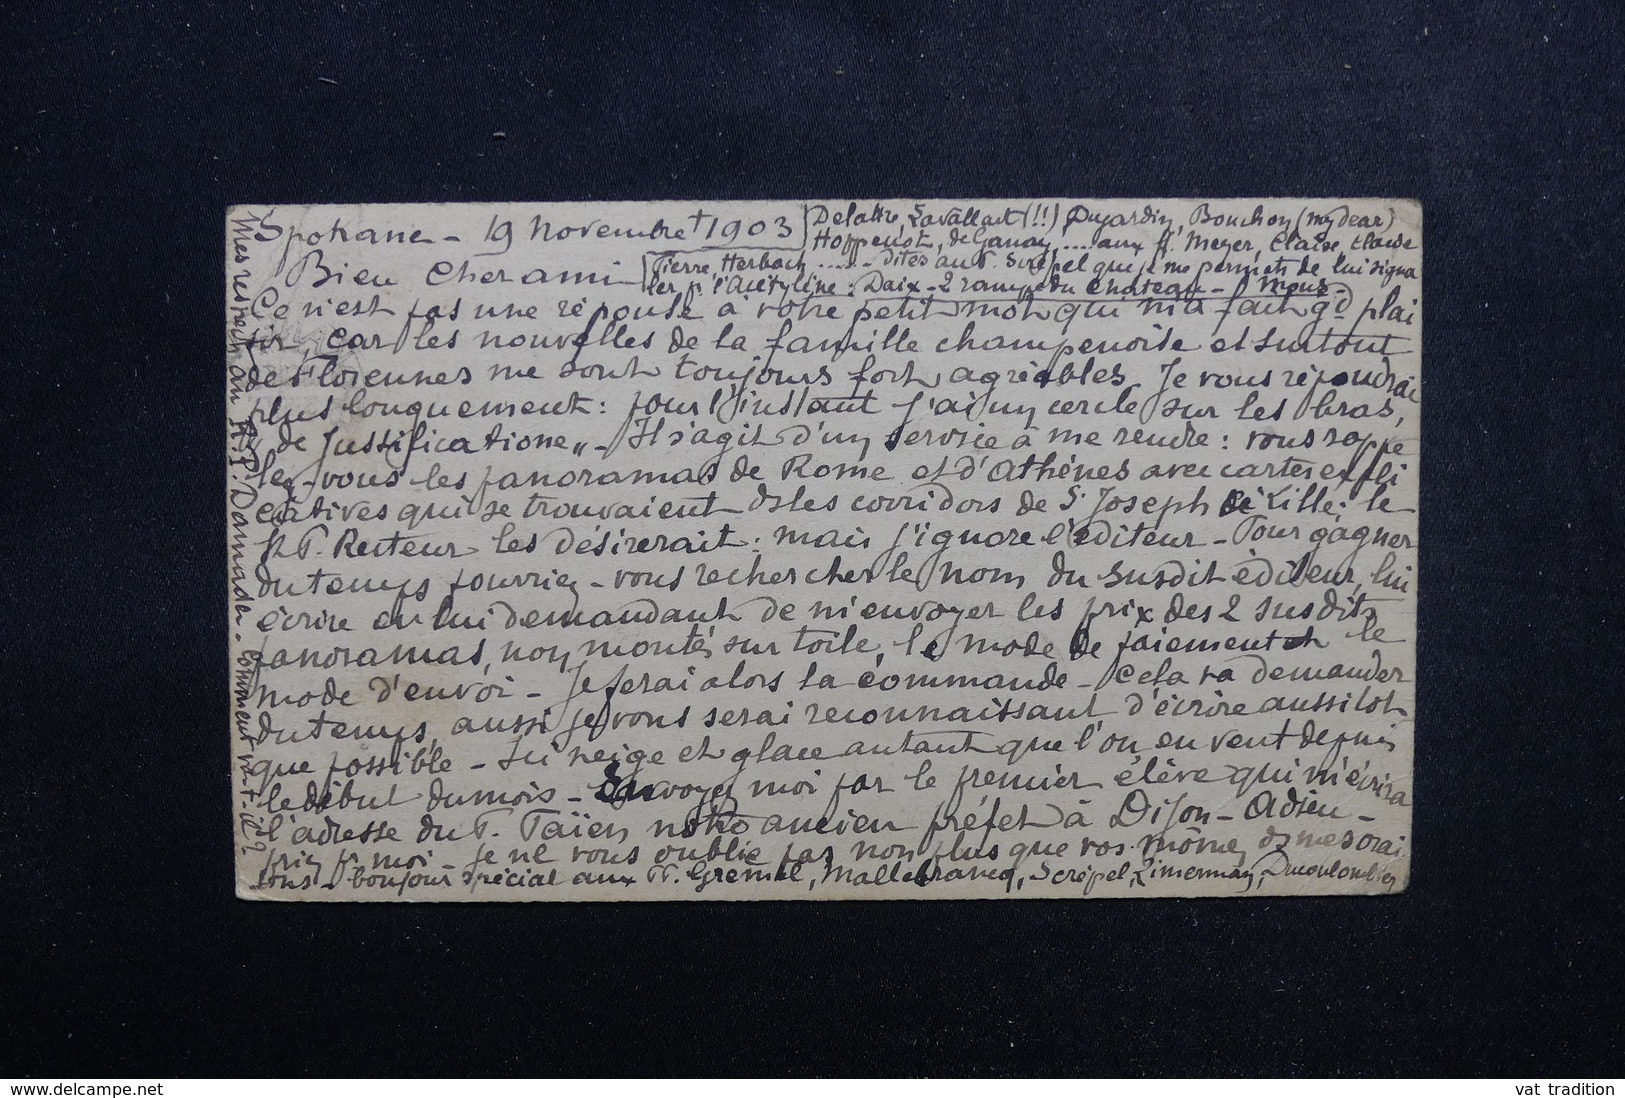 Spokane - 19 Novembre † 1903
Bien Cher ami
Ce n'est pas une réponse à votre petit mot qui m'a fait gd plai
sir, car les nouvelles de la famille champenoise et surtout
de Florennes me sont toujours fort agréables. Je vous répondrai
plus longuement : pour l'instant j'ai un cercle sur les bras,
"de Justificatione" - Il s'agit d'un service à me rendre : vous rappe
lez-vous les panoramas de Rome et d'Athènes avec cartes expli
catives qui se trouvaient ds les corridors de St Joseph de Lille; le
R. P. Recteur les désirerait : mais j'ignore l'éditeur - Pour gagner
du temps pourriez-vous rechercher le nom du susdit éditeur, lui
écrire en lui demandant de m'envoyer les prix des 2 susdits
panoramas, non montés sur toile, le mode de paiement et le
mode d'envoi - Je ferai alors la commande - Cela va demander
du temps, aussi je vous serai reconnaissant d'écrire aussitôt
que possible - Ici neige et glace autant que l'on en veut depuis
le début du mois - Envoyez moi par le premier élève qui m'écrira
l'adresse du P. Taïen notre ancien préfet à Dijon - Adieu -
priez pr moi - Je ne vous oublie pas non plus que vos mômes ds mes orai
sons - bonjour spécial aux PP. Gremel, Mallebrancq, Scrépel, Zimerman, Ducoulombier
Delattre, Lavallart (!!), Dujardin, Bouchon (my dear)
Hoppenot, de Ganay .... aux ff. Meyer, Claise, Claude
Pierre, Herbach ...... - Dites au P. Scrépel que je me permets de lui signa
ler pr l'Acétylène : Daix - 2 rampe du Chateau - Mons -
Mes respects au R. P. Dannade - comment va-t-il ?
https://www.delcampe.net
vat_tradition